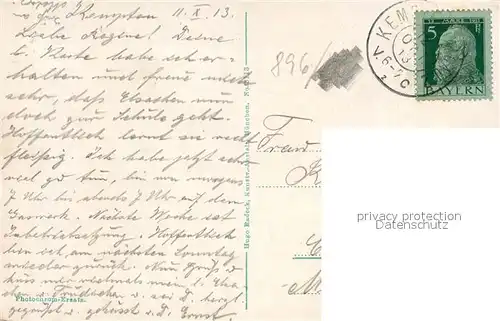 Kempten 11. X. 13.
Liebe Regine! Deine
l. Karte habe ich er-
halten und freue mich
sehr, daß Elsachen nun
doch zur Schule geht.
Hoffentlich lernt sie recht
fleißig. Ich habe jetzt sehr
viel zu tun, bin von morgens
7 Uhr bis abends 7 Uhr auf dem
Gaswerk. Nächste Woche ist
Inbetriebsetzung. Hoffentlich
bin ich am nächsten Sonntag
wieder zurück. Nun Gruß u
Kuss mir vielmals mein l. Elsa
u. sei D. herzl.
gegrüßt u. geküsst v. D. Ernst.
Photochrom-Ersatz.
Hugo Radeck, Kunstanstalt, München. No.
896/
KEMP
V. 6-7
5
BAYERN
Frau
privacy protection
Datenschutz